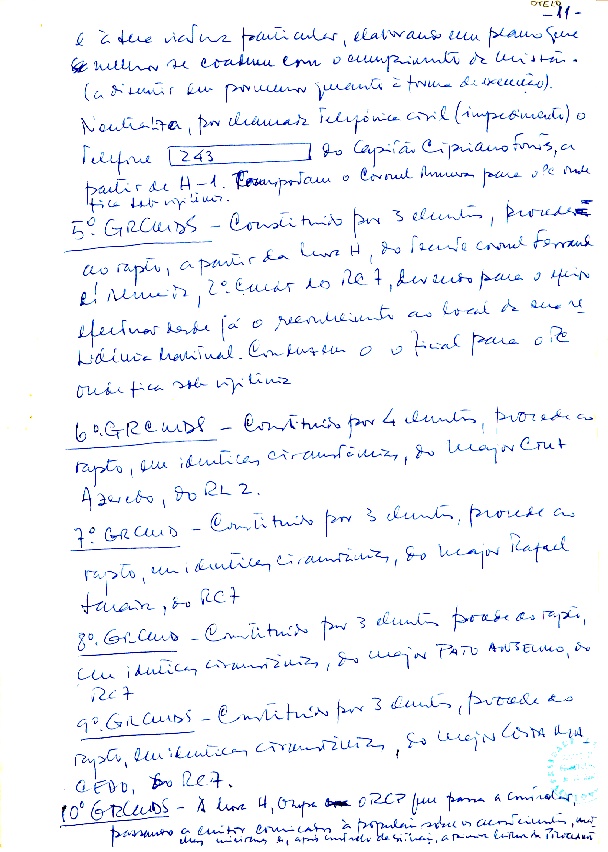 -11-
e à sua viatura particular, elaborando um plano que
melhor se coadune com o cumprimento da missão.
(a discutir em pormenor quanto à forma de execução).
Neutraliza, por chamada telefónica civil (impedimento) o
telefone 243 do Capitão Cipriano Fontes, a
partir de H-1. Transportam o Coronel para o PC onde
fica sob vigilância.
5º. GRCMDS - Constituído por 3 elementos, procede
ao rapto, a partir da hora H, do Tenente coronel Ferrand
d'Almeida, 2º. Cmdt do RC7, devendo para o efeito
efectuar desde já o reconhecimento ao local da sua re
sidência habitual. Conduzem o oficial para o PC
onde fica sob vigilância
6º. GRCMDS - Constituído por 4 elementos, procede ao
rapto, em identicas circunstâncias, do Major
Azevedo, do RL2.
7º. GRCMD - Constituído por 3 elementos, procede ao
rapto, em identicas circunstâncias, do Major Rafael
, do RC7
8º. GRCMD - Constituído por 3 elementos procede ao rapto,
em identicas circunstâncias, do Major PATO ANSELMO, do
RC7
9º. GRCMDS - Constituído por 3 elementos, procede ao
rapto, em identicas circunstâncias, do Major COSTA MA
CEDO, do RC7.
10º GRCMDS - À hora H, Ocupa o RCP que passa a controlar,
passando a emitir comunicados à população sobre os acontecimentos,
e, após controlo da situação, a